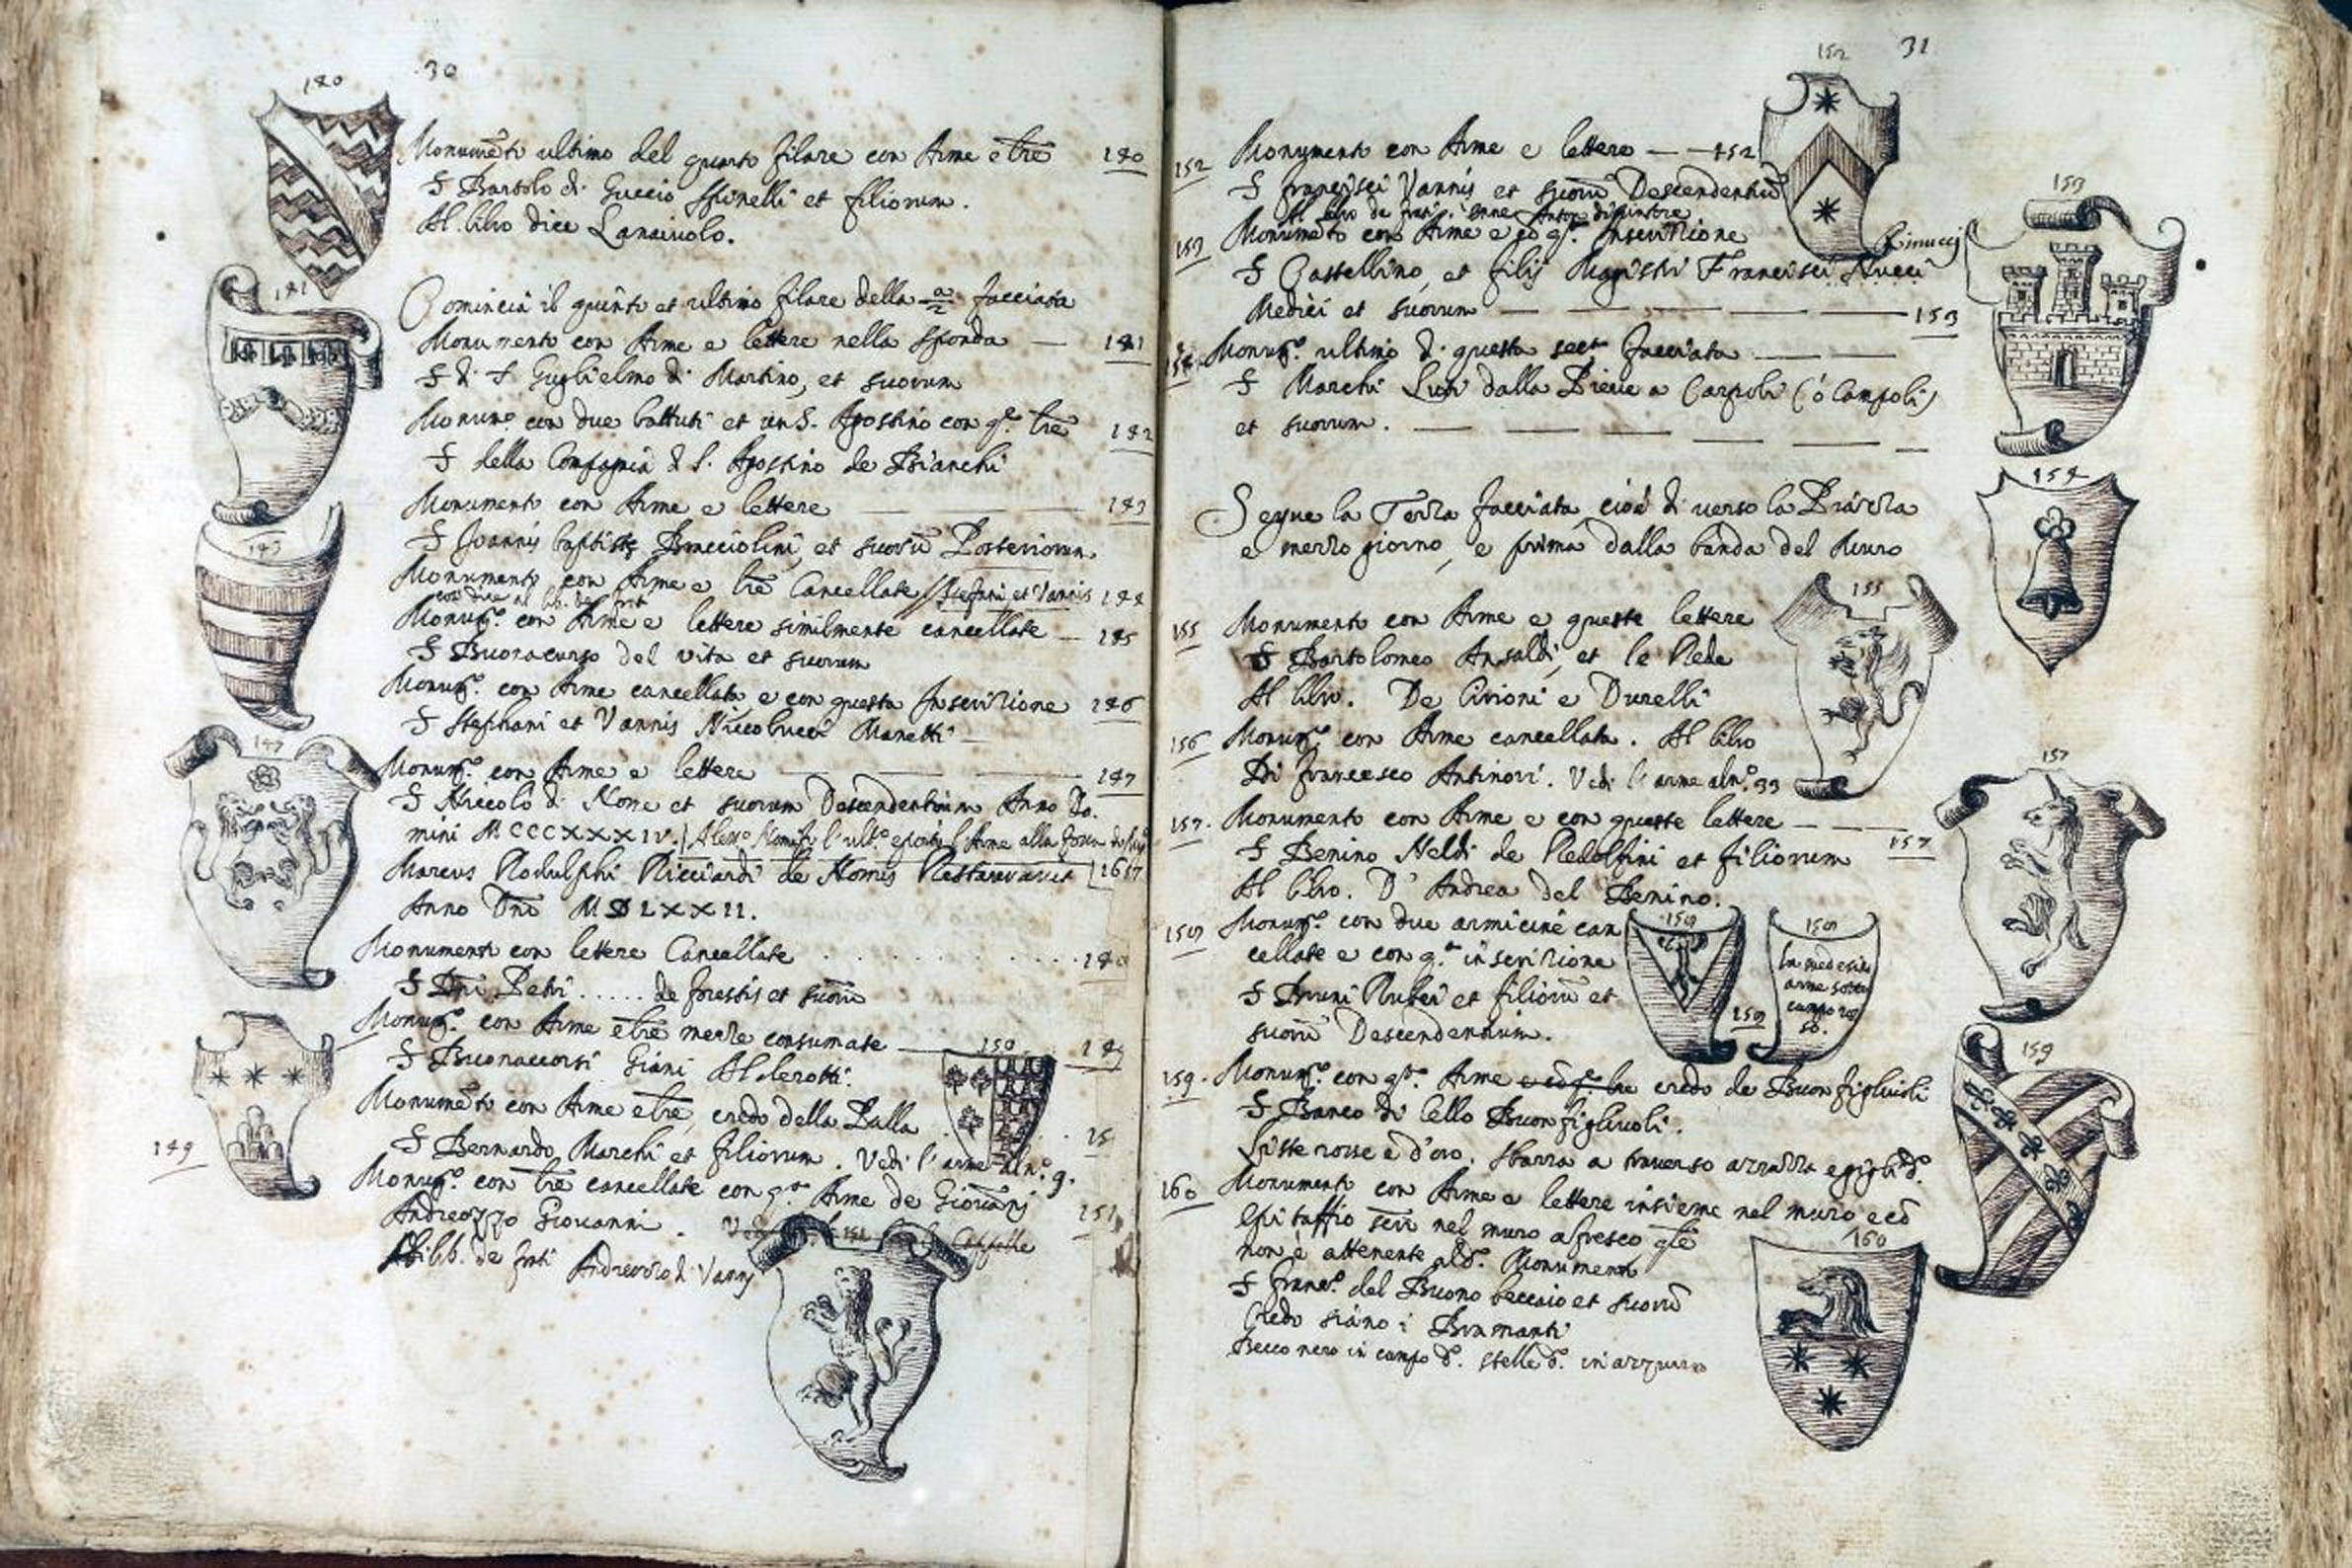 30
140
Monumẽto ultimo del quarto filare con Arme e lr̃e 140
S Bartolo di Guccio Spinelli et filiorum.
Al libro dice Lanaiuolo.
141
Comincia il quinto et ultimo filare della 2a facciata
Monumento con Arme e lettere nella sponda — 141
S di S Guglielmo di Martino, et suorum
Monumo con due battuti et un S. Agostino con qe lr̃e 142
S della Compagnia d S. Agostino de Bianchi
Monumento con Arme e lettere 143
143
S Joannis baptistę Bracciolini, et suorũ Posteriorum.
Monumento con Arme e lr̃e Cancellate Stefani et Vannis 144
così dice al lib. de frati
Monumto. con Arme e lettere similmente cancellate — 145
S Buonacurso del vita et suorum
Monumto. con Arme cancellata e con questa Inscrizione 146
S Stephani et Vannis Niccolucci Manetti —
147
Monumto. con Arme e lettere 147
S Niccolò di Nome et suorum Descendentium Anno Do.
mini MCCCXXXIV. l'ulto. l'Arme alla
Marcus Rodulphi Ricciardi de Nomis Restauravit
Anno Dñi MDLXXII.
Monumento con lettere Cancellate . . . . . . . 148
S Dñi Petri ..... de foressis et suorũ
Monumto. con Arme e lr̃e mezze consumate — 149
S Buonaccorsi Giani Alderotti.
150
Monumẽto con Arme e lr̃e, credo della Palla . . . 15
149
S Bernardo Marchi et filiorum. Vedi l'arme al no. 9.
Monumto. con lr̃e cancellate con qta Arme de Giovanni 151
Andreozzo Giovanni.
Al lib. de frati Andreozzo di Vanni
151
31
152
152 Monumento con Arme e lettere — — 152
S francisci Vannis et suorũ Descendentiũ
Al libro de frati.
153 Monumẽto con Arme e cõ qta. Inscrizione
Rinucci
S Castellino, et filijs Magistri Francisci Nucci
Medici et suorum — — — — — 153
153
154 Monumto. ultimo di questa secda facciata — —
S Marchi Luci dalla Pieve a Carpoli (ò Campoli)
et suorum. — — — — — —
154
Segue la Terza facciata, cioè di verso la Piazza
e mezzo giorno, e prima dalla banda del Muro
155
155 Monumento con Arme e queste lettere
S Bartolomeo Ansaldi, et le Rede
Al libro. De Cirioni e Durelli
156 Monumto. con Arme cancellata. Al libro
Di francesco Antinori. Vedi l'arme al no. 33
157
157. Monumento con Arme e con queste lettere — — 157
S Benino Neldi de Redolfini et filiorum
Al libro. D'Andrea del Benino.
158 Monumto. con due armicine can
cellate e con qta inscrizione
S Bruni Ruberi et filiorũ et
suorũ Descendentium.
158
158
158
La medesima
arme sotto
campo ros
so.
159
159. Monumto. con qta. Arme credo de Buonfigliuoli
S Banco di Cello Buonfigliuoli.
Liste rosse e d'oro. sbarra a traverso azzurra e gigli do.
160 Monumento con Arme e lettere insieme nel muro e cõ
Epitaffio nel muro a fresco qle
non è attenente al do. Monumento
S franco. del Buono beccaio et suorũ
Credo siano i Bramanti
Becco nero in campo do. stelle do. in azzurro
160